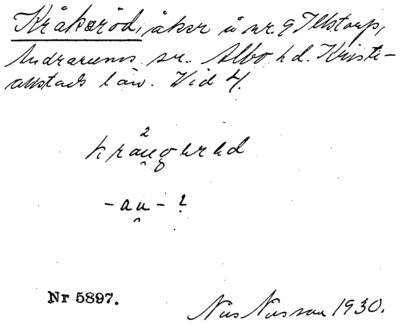 Kråkeröd, åker å nr. 9 Illstorp,
Andrarums sn. Albo hd. Kristi-
anstads län. Vid 4.
2
krau̯gərhd
-au̯- ?
Nr 5897.
Nils Nilsson 1930.